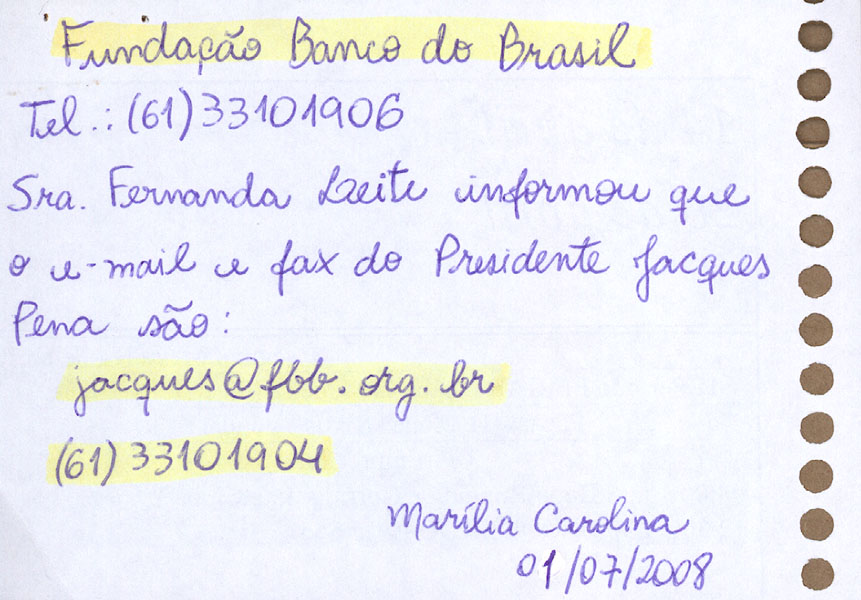 Fundação Banco do Brasil
Tel.: (61) 33101906
Sra. Fernanda Leite informou que
o e-mail e fax do Presidente Jacques
Pena são:
jacques@fbb.org.br
(61) 33101904
Marília Carolina
01/07/2008